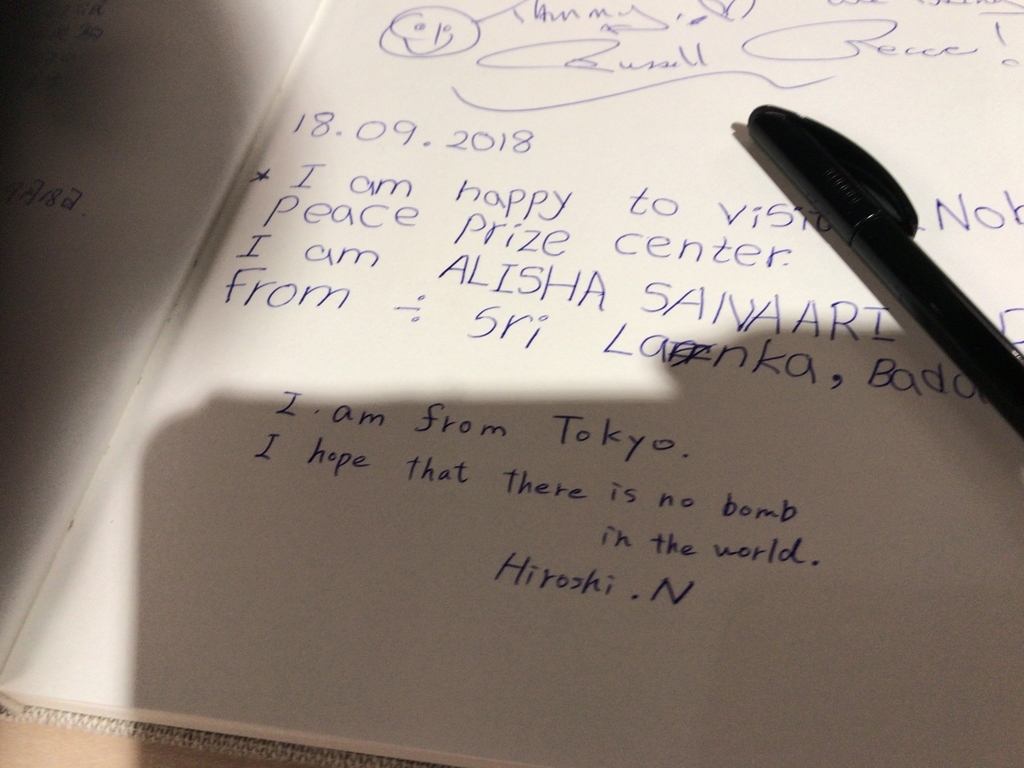 Russell Reece!
18.09.2018
* I am happy to visit Nob
Peace Prize center.
I am ALISHA SANAARI
From ÷ Sri Lanka, Bado
I am from Tokyo.
I hope that there is no bomb
in the world.
Hiroshi.N